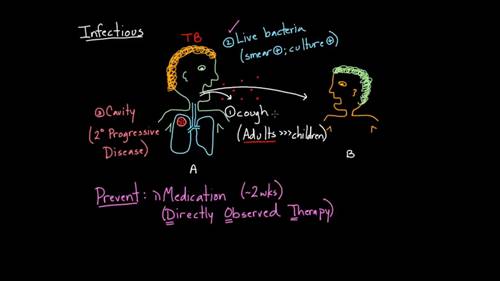 Infectious
TB
② Live bacteria
(smear ⊕; culture ⊕)
③ Cavity
(2° Progressive
Disease)
① cough
(Adults >>> children)
A
B
Prevent: 1) Medication (~2wks)
(Directly Observed Therapy)